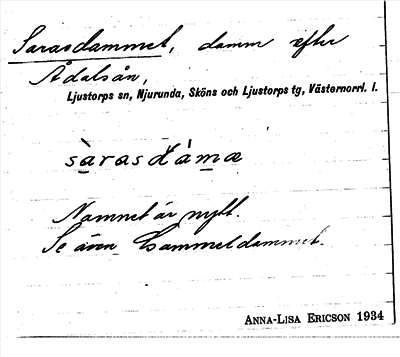 Sarasdammet, damm efter
Ådalsån,
Ljustorps sn, Njurunda, Sköns och Ljustorps tg, Västernorrl. l.
Namnet är nytt.
Se även
ANNA-LISA ERICSON 1934